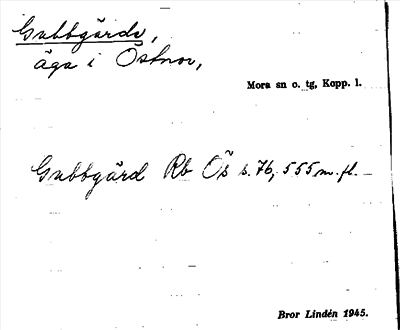 Gubbgårde,
äga i Östnor,
Mora sn o. tg, Kopp. l.
Gubbgård Rb Ös s. 76, 555 m. fl. –
Bror Lindén 1945.